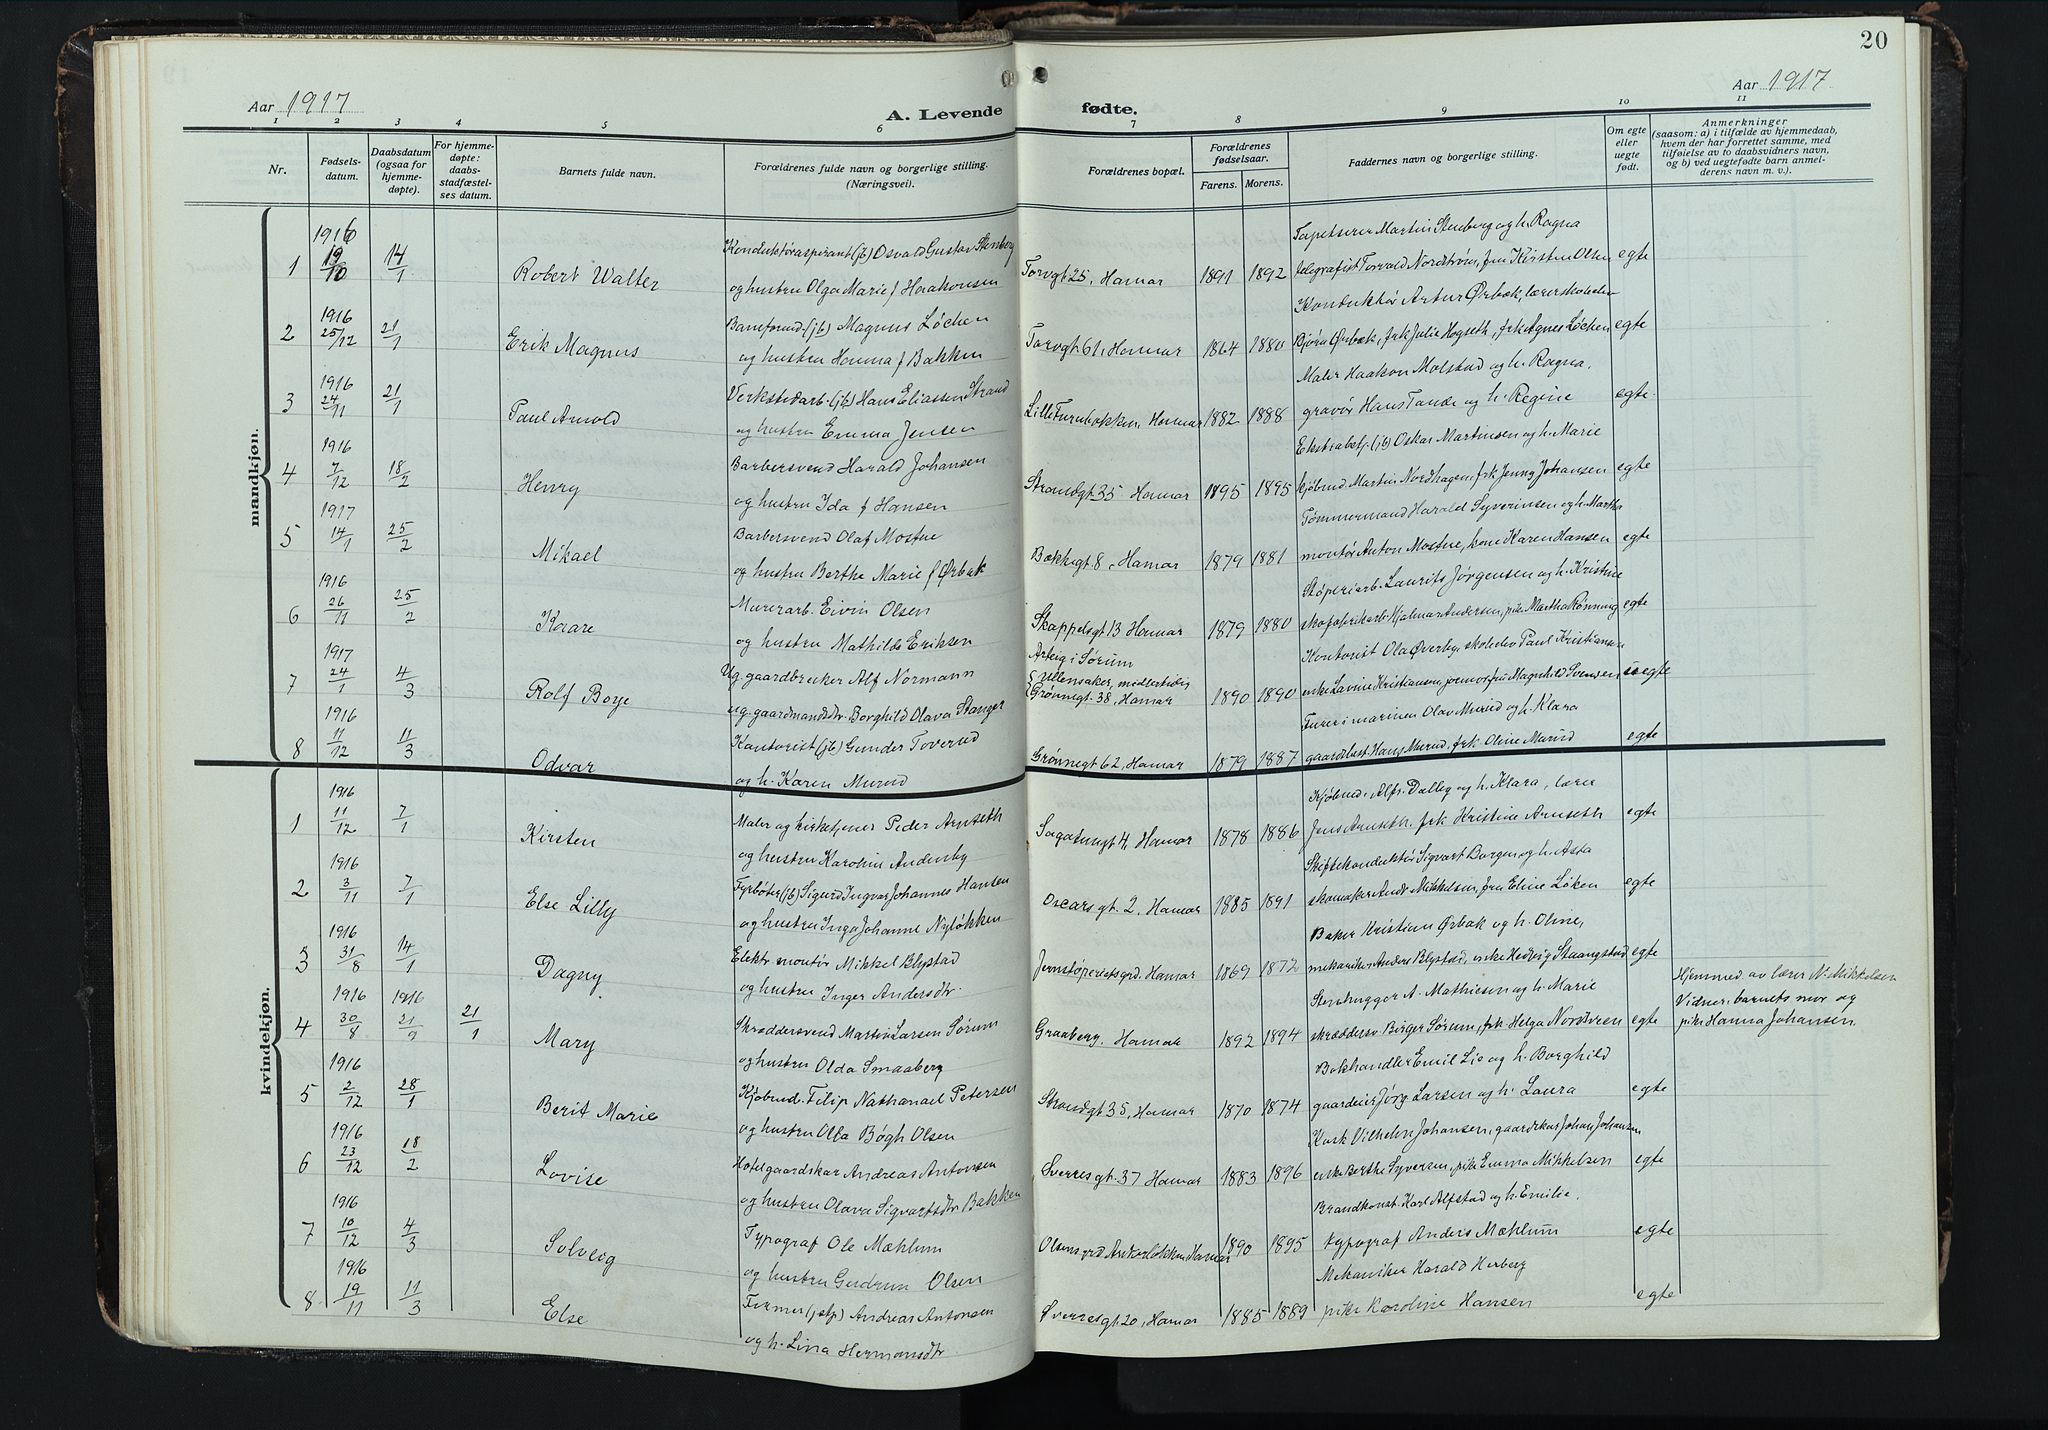 20
Aar 1917
Aar 1917
A. Levende fødte.
1 2 3 4 5 6 7 8 9 10 11
Nr.
Fødsels-
datum.
Daabsdatum
(ogsaa for
hjemme-
døpte).
For hjemme-
døpte:
daabs-
stadfæstel-
ses datum.
Barnets fulde navn.
Forældrenes fulde navn og borgerlige stilling.
(Næringsvei).
Forældrenes bopæl.
Forældrenes
fødselsaar.
Farens. Morens.
Faddernes navn og borgerlige stilling.
Om egte
eller
uegte
født.
Anmerkninger
(saasom: a) i tilfælde av hjemmedaab,
hvem der har forrettet samme, med
tilføielse av to daabsvidners navn,
og b) ved uegtefødte barn anmel-
derens navn m. v.).
mandkjøn.
1916 Konduktøraspirant (jb) Osvald Gustav Stenberg Tapetserer Martin Stenberg og h. Ragna
1 19/10 14/1 Robert Walter og hustru Olga Marie f Haakonsen Torvgt 25, Hamar 1891 1892 telegrafist Torvald Nordstrøm, fru Kirsten Olsen egte
1916 Baneformd. (jb) Magnus Løchen Konduktør Artur Ørbæk, lærerskoleelev
2 25/12 21/1 Erik Magnus og hustru Hanna f Bakken Torvgt. 61, Hamar 1864 1880 Bjørn Ørbæk, frk Julie Hogseth, frk Agnes Løchen egte
1916 Verkstedarb. (jb) Hans Eliassen Strand Maler Haakon Molstad og h. Ragna,
3 24/11 21/1 Paul Arnold og hustru Emma Jensen Lille Furubakken, Hamar 1882 1888 gravør Hans Tande og h. Regine egte
1916 Barbersvend Harald Johansen Ekstrabetj. (jb) Oskar Martinsen og h. Marie
4 7/12 18/2 Henry og hustru Ida f Hansen Strandgt 35 Hamar 1895 1895 kjøbmd. Martin Nordhagen, frk Jenny Johansen egte
1917 Barbersvend Olaf Mostue Tømmermand Harald Syverinsen og h. Martha
5 14/1 25/2 Mikael og hustru Berthe Marie f Ørbak Bækkegt. 8, Hamar 1879 1881 montør Anton Mostue, kone Karen Hansen egte
1916 Murerarb. Eivin Olsen Støperiarb. Laurits Jørgensen og h. Kristine
6 26/11 25/2 Kaare og hustru Mathilde Eriksen Skappelsgt 13 Hamar 1879 1880 skofabrikarb. Hjalmar Andersen, pike Martha Rønning egte
1917 Ug. gaardbruker Alf Normann Arteig i Sørum Kontorist Ola Øverby, skoleelev Paul Kristiansen
7 24/1 4/3 Rolf Borje ug. gaardmandsdtr. Borghild Olava Stanger Ullensaker, midlertidig
Grønnegt. 38, Hamar 1890 1890 enke Lavine Kristiansen, jormorfru Magnhild Svensen uegte
1916 Kontorist (jb) Gunder Toverud Furer i marinen Olav Murud og h. Klara
8 11/12 11/3 Odvar og h. Karen Murud Grønnegt 62, Hamar 1879 1887 gaardbest. Hans Murud, frk. Oline Murud egte
kvindekjøn.
1916 Maler og kirketjener Peder Arnseth Kjøbmd. Alfr. Dalby og h. Klara, lærer
1 11/12 7/1 Kirsten og hustru Karoline Andersby Sagatungt 4, Hamar 1878 1886 Jens Arnseth. frk Kristine Arnseth egte
1916 Fyrbøter (jb) Sigurd Ingvar Johannes Hansen Skiftekonduktør Sigvart Borgen og h. Asta
2 3/11 7/1 Else Lilly og hustru Inga Johanne Nyløkken Oscarsgt. 2, Hamar 1885 1891 skomaker Andr Mikkelsen, fru Eline Løken egte
1916 Elektr. montør Mikkel Blystad Baker Kristian Ørbak og h. Oline,
3 31/8 14/1 Dagny og hustru Inger Andersdtr. Jernstøperietsgrd. Hamar 1869 1872 mekaniker Anders Blystad, enke Hedvig Staangstad egte
1916 1916 Skræddersvend Martin Larsen Sørum Stenhugger A. Mathiesen og h. Marie
4 30/8 21/9 21/1 Mary og hustru Olda Smaaberg Graaberg, Hamar 1892 1894 skræddersv. Birger Sørum, frk Helga Nordsveen egte
Hjemmed av lærer N. Mikkelsen
Vidner: barnets mor og
pike Hanna Johansen.
1916 Kjøbmd. Filip Nathanael Petersen Bokhandler Emil Lie og h. Borghild
5 2/12 28/1 Berit Marie og hustru Olla Bøgh Olsen Strandgt 35, Hamar 1870 1874 gaardeier Jørg. Larsen og h. Laura egte
1916 Hotelgaardskar Andreas Antonsen Kusk Vilhelm Johansen, gaardskar Johan Johansen
6 23/12 18/2 Lovise og hustru Olava Sigvartsdtr Bakken Sverresgt. 37 Hamar 1883 1896 enke Berthe Syversen, pike Emma Mikkelsen egte
1916 Typograf Ole Mæhlum Brandkonst. Karl Alfstad og h. Emilie,
7 10/12 4/3 Solveig og hustru Gudrun Olsen Olsensgrd Ankerløkken, Hamar 1890 1895 typograf Anders Mæhlum egte
1916 Formes (jstp) Andreas Antonsen Mekaniker Harald Herberg
8 19/11 11/3 Else og h. Lina Hermansdtr Sverresgt 20, Hamar 1885 1889 pike Karoline Hansen egte